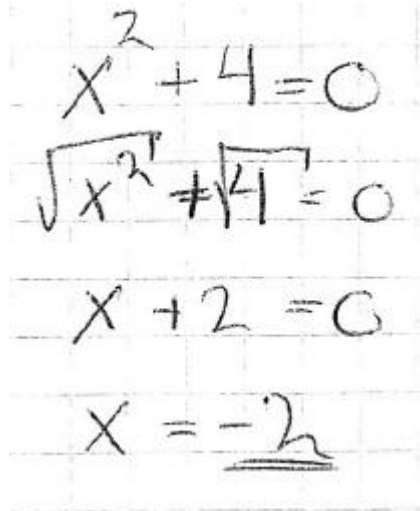 x² + 4 = 0
√x² + √4 = 0
x + 2 = 0
x = -2